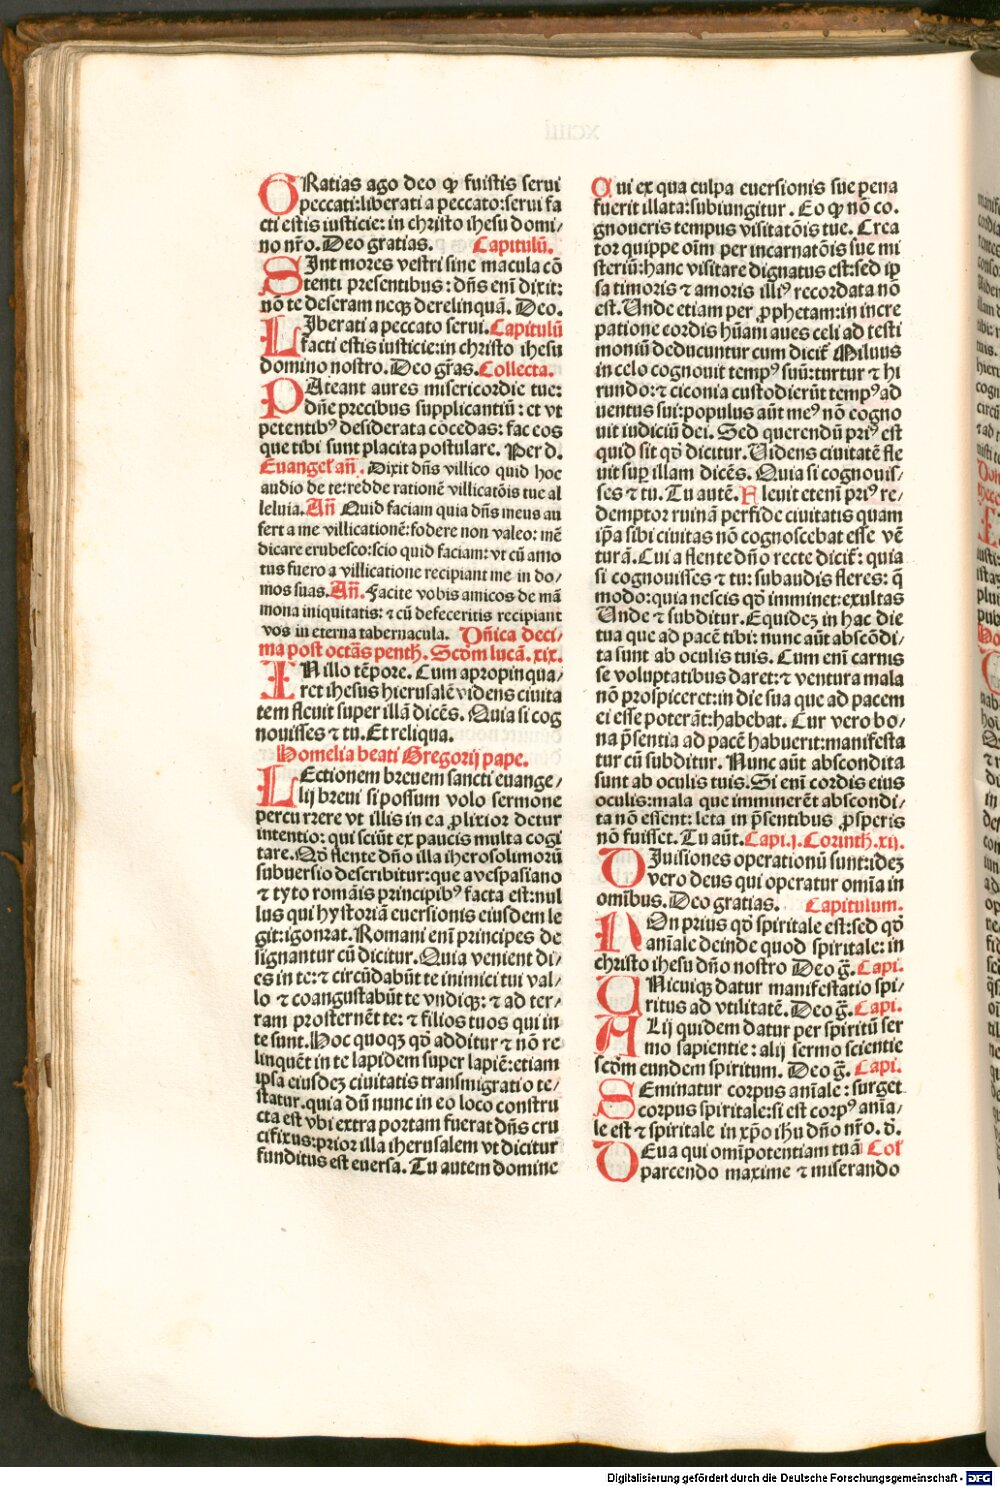 GRatias ago deo ꝙ fuistis serui
peccati:liberati a peccato:serui fa
cti estis iusticie: in christo ihesu domi/
no nr̄o. Deo gratias. Capitulū.
SInt mores vestri sine macula cō
tenti presentibus: dn̄s enī dixit:
nō te deseram neqꝫ derelinquā. Deo.
LIberati a peccato serui. Capitulū
facti estis iusticie: in christo ihesu
domino nostro. Deo gr̄as. Collecta.
PAteant aures misericordie tue:
dn̄e precibus supplicantiū: et vt
petentibꝰ desiderata cōcedas: fac eos
que tibi sunt placita postulare. Per d.
Euangeł an̄. Dixit dn̄s villico quid hoc
audio de te: redde rationē villicatōis tue al
leluia. An̄ Quid faciam quia dn̄s meus au
fert a me villicationē: fodere non valeo: mē
dicare erubesco: scio quid faciam: vt cū amo
tus fuero a villicatione recipiant me in do/
mos suas. An̄. Facite vobis amicos de mā
mona iniquitatis: ⁊ cū defeceritis recipiant
vos in eterna tabernacula. Dn̄ica deci/
ma post octās penth. Scd̄m lucā. xix.
IN illo tēpore. Cum apropinqua/
ret ihesus hierusalē videns ciuita
tem fleuit super illā dicēs. Quia si cog
nouisses ⁊ tu. Et reliqua.
Homelia beati Gregorij pape.
LEctionem breuem sancti euange/
lij breui si possum volo sermone
percurrere vt illis in ea ꝓlixior detur
intentio: qui sciūt ex paucis multa cogi
tare. Qd̄ flente dn̄o illa iherosolimorū
subuersio describitur: que a vespasiano
⁊ tyto romāis principibꝰ facta est: nul
lus qui hystoriā euersionis eiusdem le
git: igonrat. Romani enī principes de
signantur cū dicitur. Quia venient di/
es in te: ⁊ circūdabūt te inimici tui val/
lo ⁊ coangustabūt te vndiqꝫ: ⁊ ad ter/
ram prosternēt te: ⁊ filios tuos qui in
te sunt. Hoc quoqꝫ qd̄ additur ⁊ nō re
linquēt in te lapidem super lapiē: etiam
ipsa eiusdeꝫ ciuitatis transmigratio te/
statur. quia dū nunc in eo loco constru
cta est vbi extra portam fuerat dn̄s cru
cifixus: prior illa iherusalem vt dicitur
funditus est euersa. Tu autem domine
Qui ex qua culpa euersionis sue pena
fuerit illata: subiungitur. Eo ꝙ nō co.
gnoueris tempus visitatōis tue. Crea
tor quippe oīm per incarnatōis sue mi
steriū: hanc visitare dignatus est: sed ip̄
sa timoris ⁊ amoris illiꝰ recordata nō
est. Unde etiam per ꝓphetam: in incre
patione cordis hūani aues celi ad testi
moniū deducuntur cum dicit̄ Miluus
in celo cognouit tempꝰ suū: turtur ⁊ hi
rundo: ⁊ ciconia custodierūt tempꝰ ad
uentus sui: populus aūt meꝰ nō cogno
uit iudiciū dei. Sed querendū priꝰ est
quid sit qd̄ dicitur. Videns ciuitatē fle
uit suꝑ illam dicēs. Quia si cognouis/
ses ⁊ tu. Tu autē. Fleuit etenī priꝰ re/
demptor ruinā perfide ciuitatis quam
ip̄a sibi ciuitas nō cognoscebat esse vē
turā. Cui a flente dn̄o recte dicit̄: quia
si cognouisses ⁊ tu: subaudis fleres: q̄
modo: quia nescis qd̄ imminet: exultas
Unde ⁊ subditur. Equideꝫ in hac die
tua que ad pacē tibi: nunc aūt abscōdi/
ta sunt ab oculis tuis. Cum enī carnis
se voluptatibus daret: ⁊ ventura mala
nō prospiceret: in die sua que ad pacem
ei esse poterāt: habebat. Cur vero bo/
na p̄sentia ad pacē habuerit: manifesta
tur cū subditur. Nunc aūt abscondita
sunt ab oculis tuis. Si enī cordis eius
oculis: mala que imminerēt abscondi/
ta nō essent: leta in p̄sentibus ꝓsperis
nō fuisset. Tu aūt. Capi. j. Corinth. xij.
DIuisiones operationū sunt: ideꝫ
vero deus qui operatur omīa in
omībus. Deo gratias. Capitulum.
NOn prius qd̄ spiritale est: sed qd̄
anīale deinde quod spiritale: in
christo ihesu dn̄o nostro Deo g̃. Capi.
UNicuiqꝫ datur manifestatio spi/
ritus ad vtilitatē. Deo g̃. Capi.
ALij quidem datur per spiritū ser
mo sapientie: alij sermo scientie
scd̄m eundem spiritum. Deo g̃. Capi.
SEminatur corpus anīale: surget
corpus spiritale: si est corpꝰ anīa/
le est ⁊ spiritale in xp̄o ih̄u dn̄o nr̄o. d.
DEus qui omīpotentiam tuā Coł
parcendo maxime ⁊ miserando
Digitalisierung gefördert durch die Deutsche Forschungsgemeinschaft - DFG